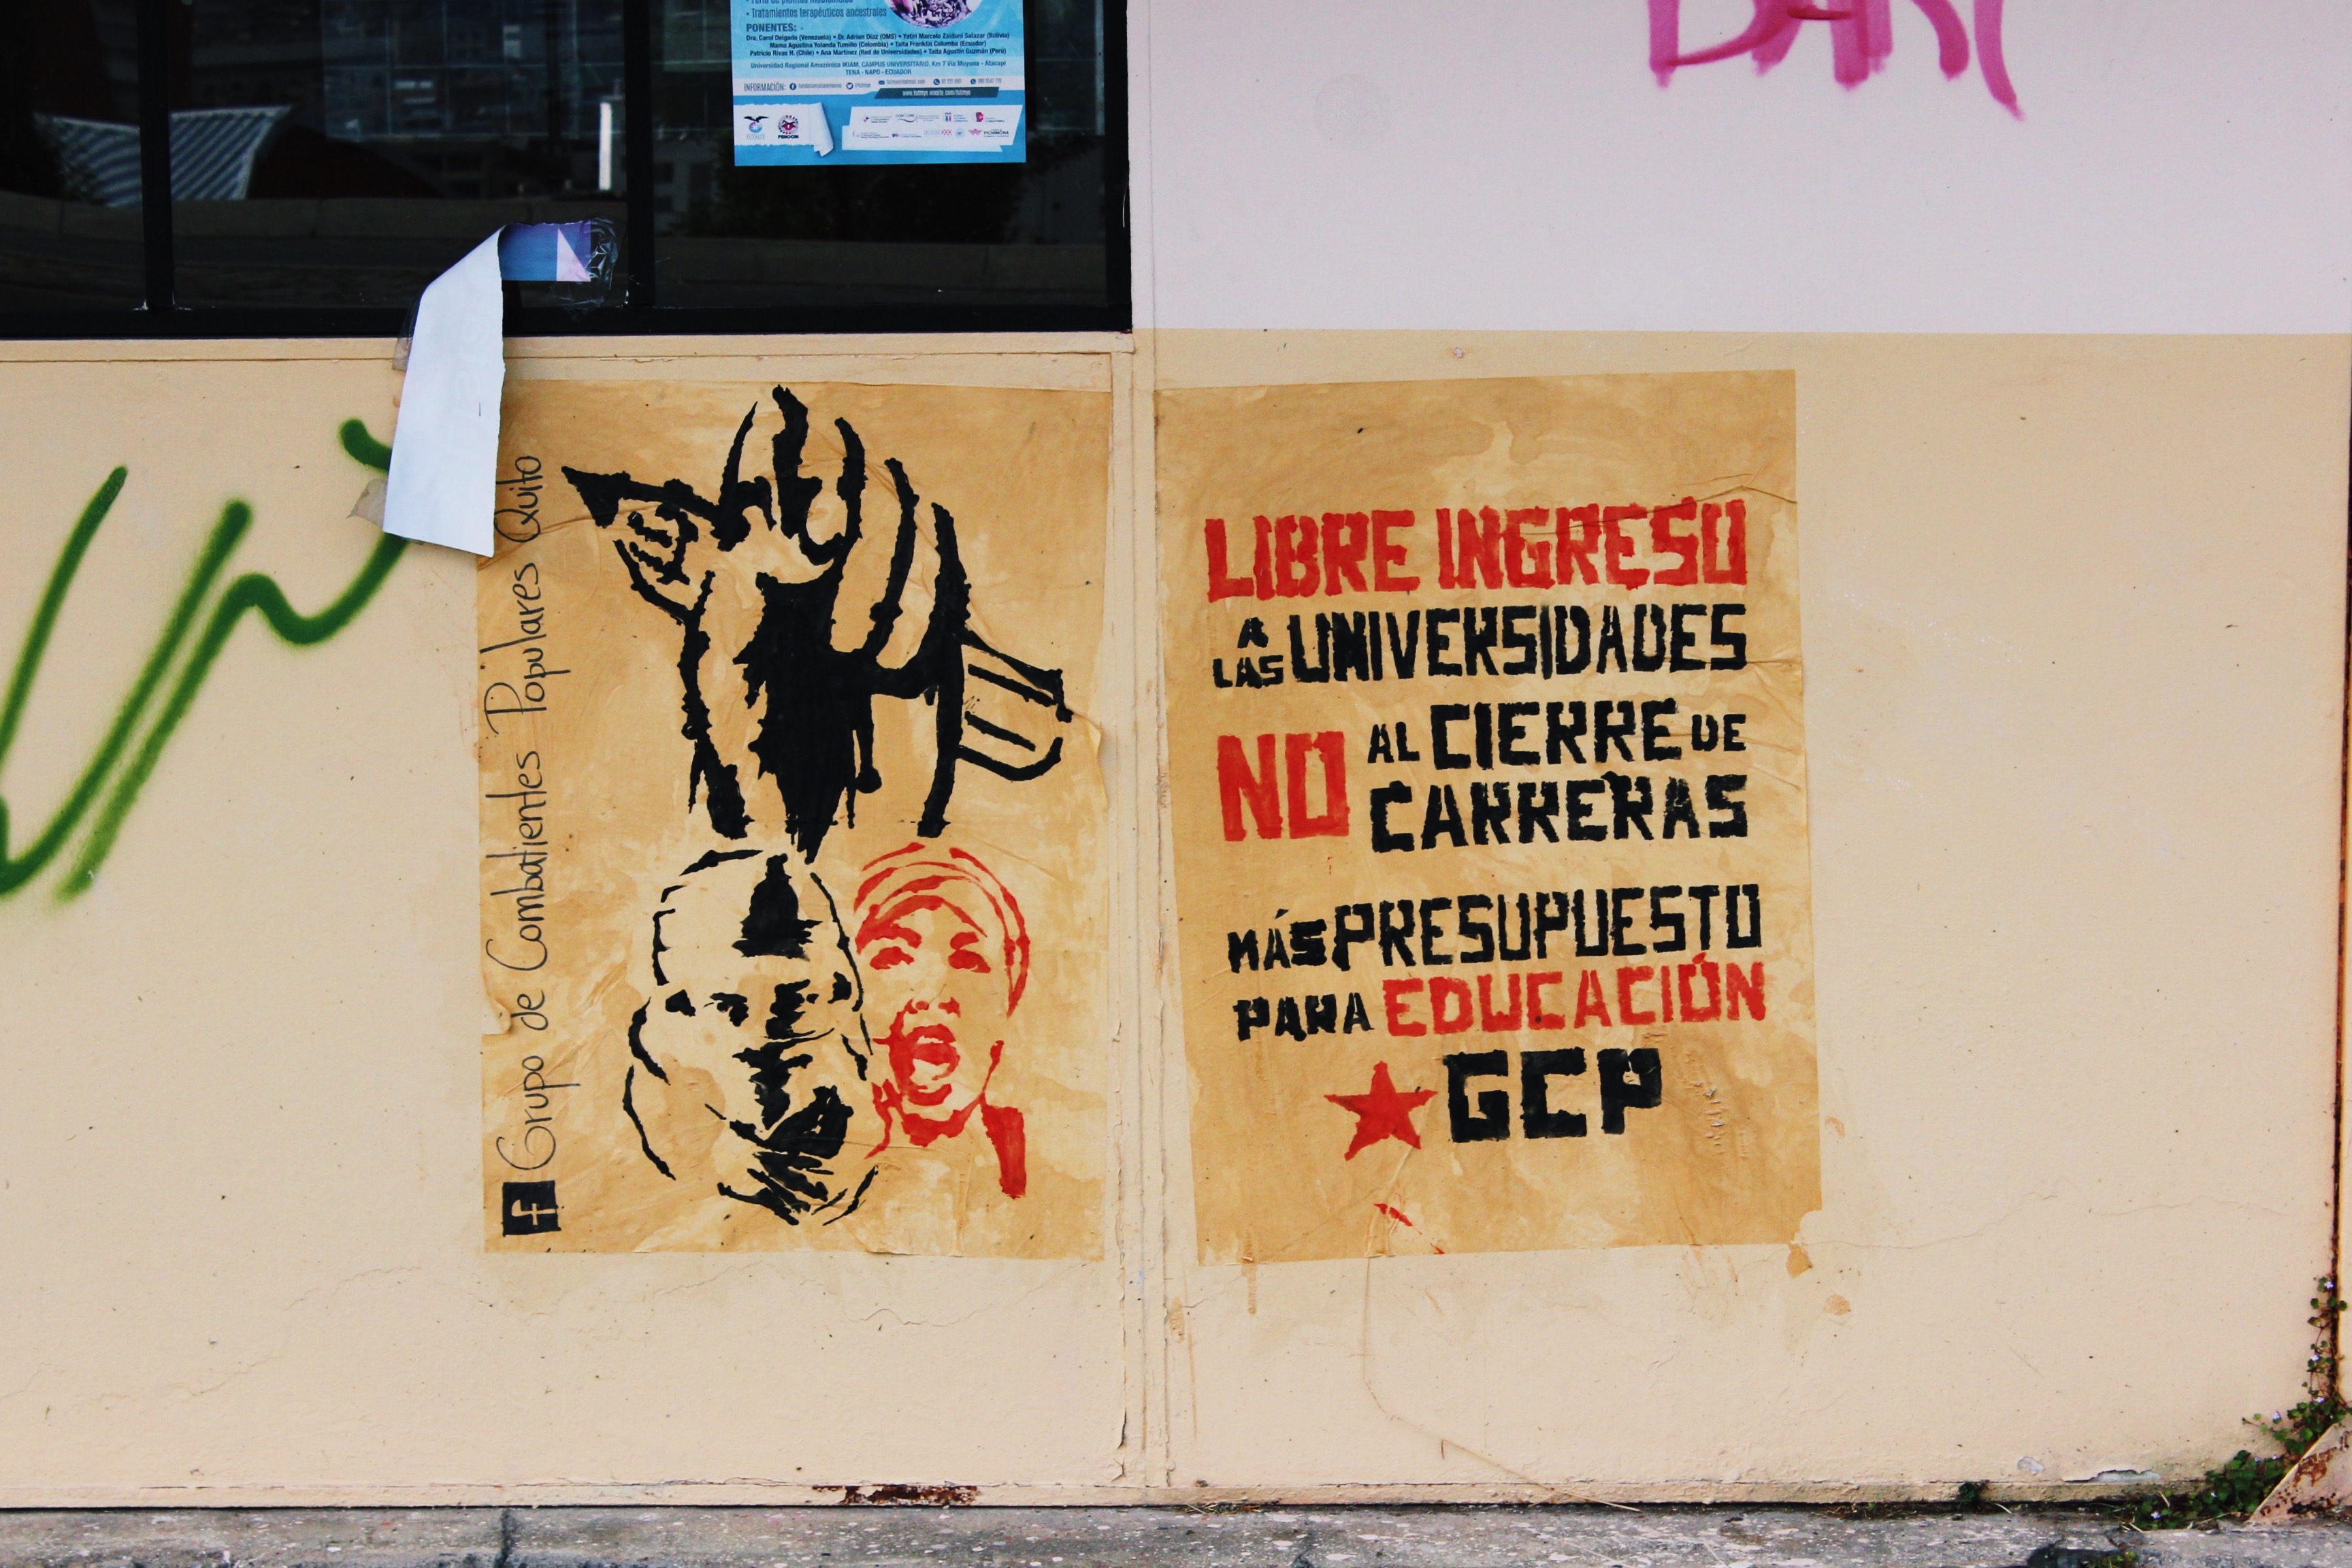 • Tratamientos terapéuticos ancestrales
PONENTES: -
Dra. Carol Delgado (Venezuela) • Dr. Adrian Díaz (OMS) • Yatiri Marcelo Zaiduni Salazar (Bolivia)
Mama Agustina Yolanda Tumiño (Colombia) • Taita Franklin Columba (Ecuador)
Patricio Rivas H. (Chile) • Ana Martínez (Red de Universidades) • Taita Agustín Guzmán (Perú)
Universidad Regional Amazónica IKIAM, CAMPUS UNIVERSITARIO, Km 7 Vía Muyuna - Atacapi
TENA - NAPO - ECUADOR
INFORMACIÓN:
FENOCIN
PICHINCHA
Grupo de Combatientes Populares Quito
LIBRE INGRESO
A
LAS UNIVERSIDADES
NO AL CIERRE DE
CARRERAS
MÁS PRESUPUESTO
PARA EDUCACIÓN
GCP